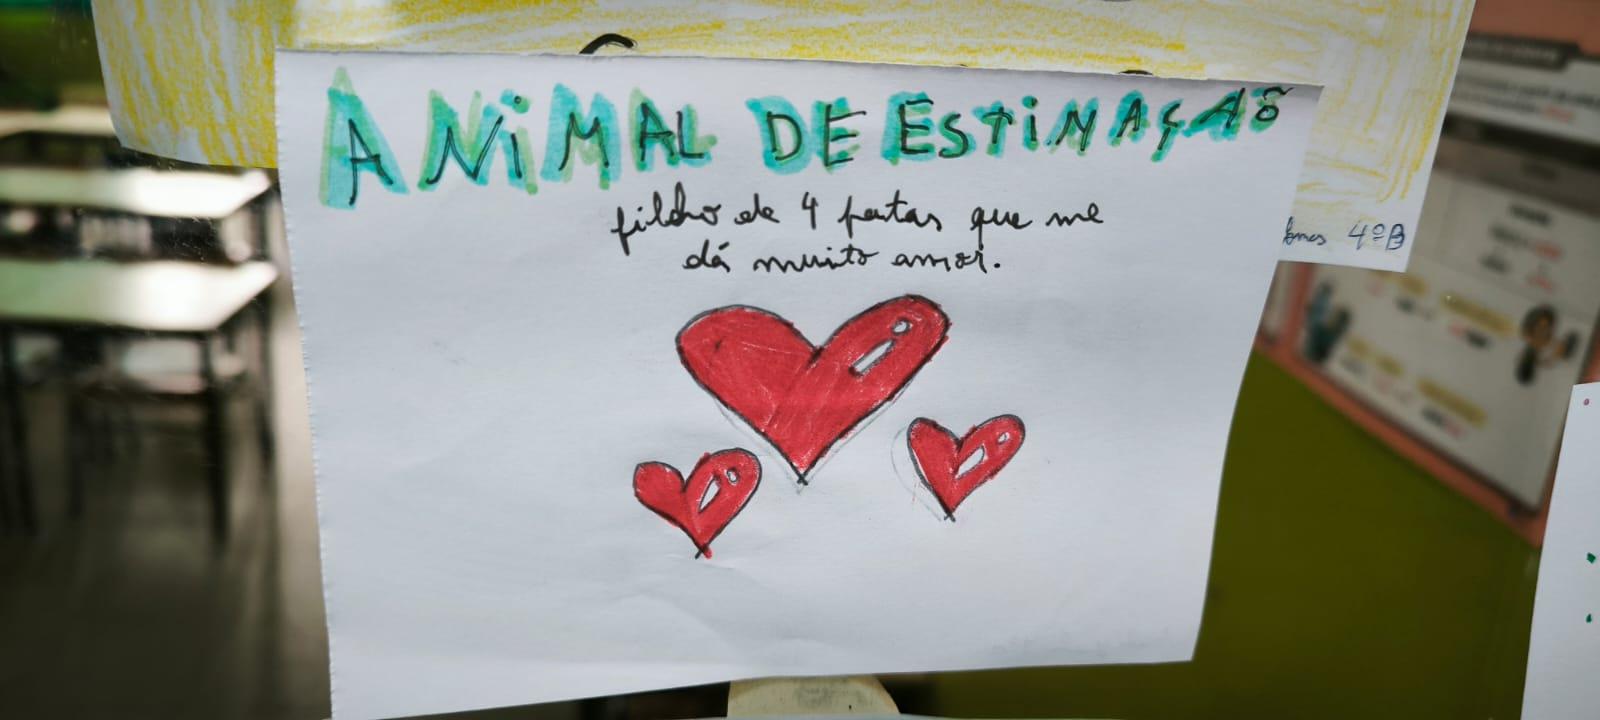 ANiMAL DE ESTiMAÇAÕ
filho de 4 patas que me
dá muito amor.
4ºB